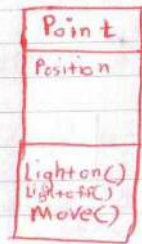 Point
Position
Lighton()
Lightoff()
Move()